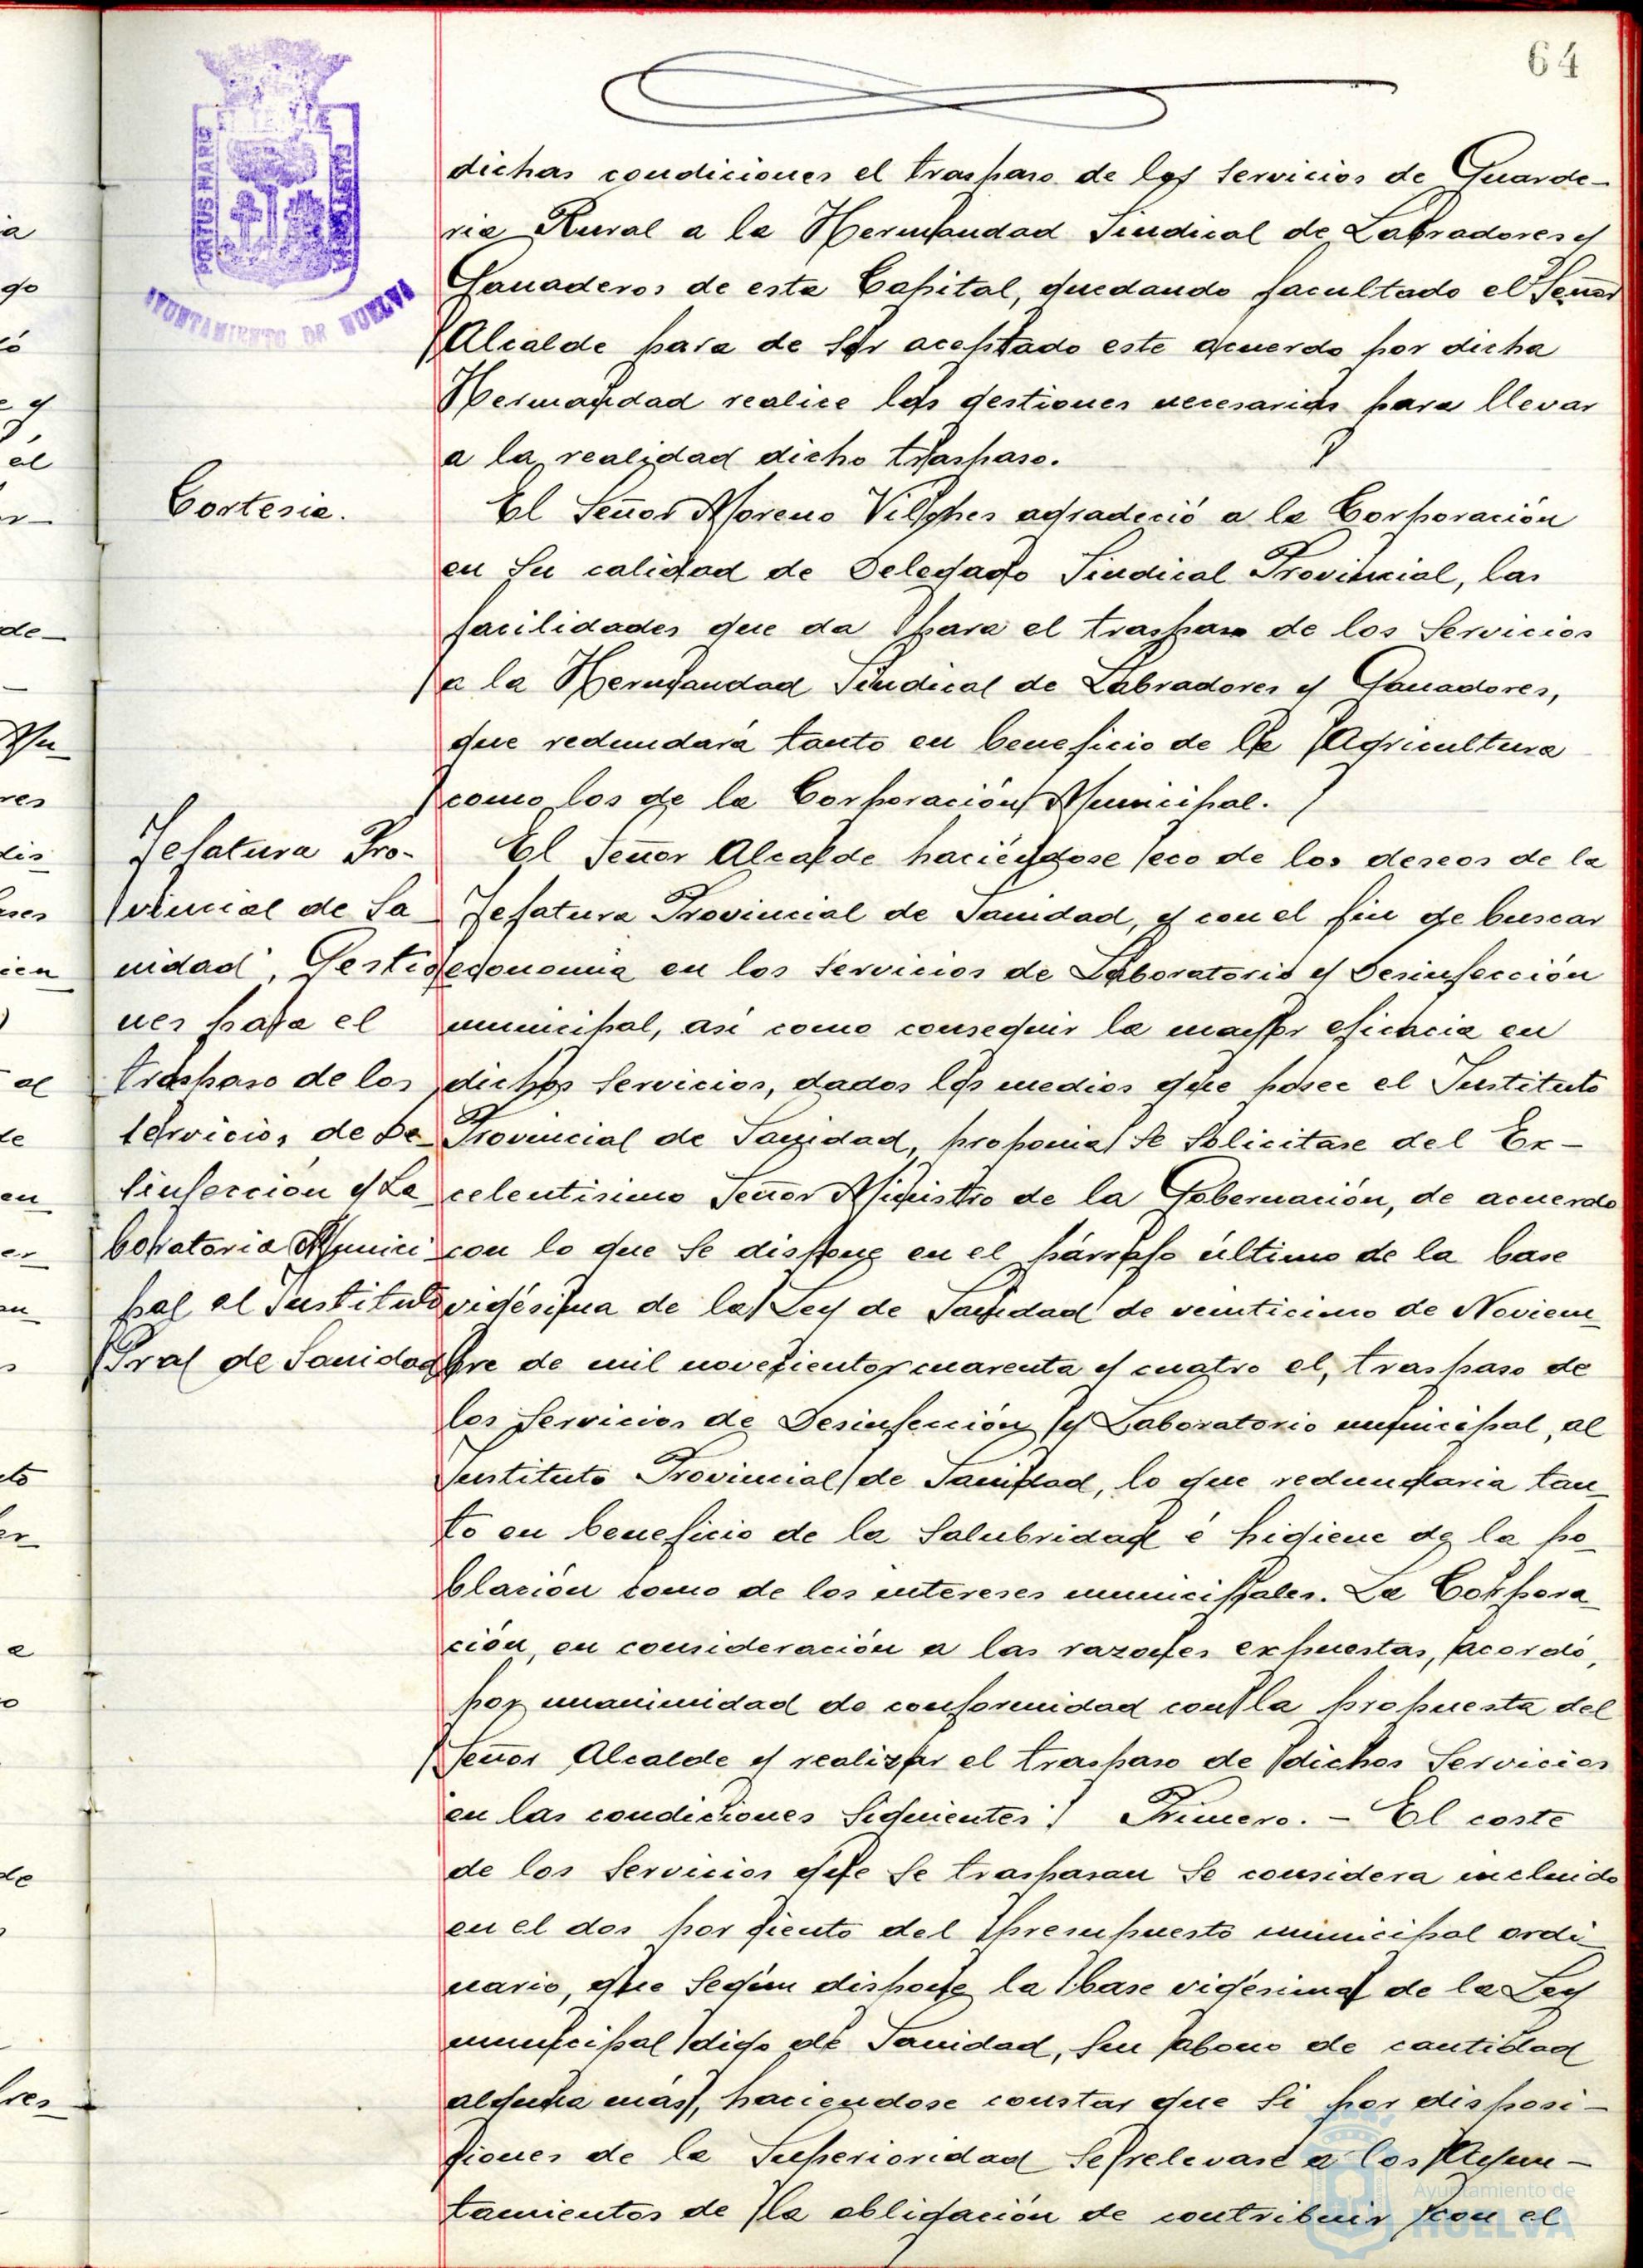 64
PORTUS MARIS
ET TERRAE
CUSTODIA
AYUNTAMIENTO DE HUELVA
dichas condiciones el traspaso de los servicios de Guarde-
ria Rural a la Hermandad Sindical de Labradores y
Ganaderos de esta Capital, quedando facultado el Señor
Alcalde para de ser aceptado este acuerdo por dicha
Hermandad realice las gestiones necesarias para llevar
a la realidad dicho traspaso.
Cortesia.
El Señor Moreno Vilches agradeció a la Corporación
en su calidad de Delegado Sindical Provincial, las
facilidades que da para el traspaso de los servicios
a la Hermandad Sindical de Labradores y Ganadores,
que redundará tanto en beneficio de la Agricultura
como los de la Corporación Municipal.
Jefatura Pro-
vincial de Sa-
nidad, Gestio
nes para el
traspaso de los
servicios de De-
sinfección y La-
boratorio Munici
pal al Instituto
Pral de Sanidad
El Señor Alcalde haciéndose eco de los deseos de la
Jefatura Provincial de Sanidad, y con el fin de buscar
economia en los servicios de Laboratorio y Desinfección
municipal, asi como conseguir la mayor eficacia en
dichos servicios, dados los medios que posee el Instituto
Provincial de Sanidad, proponia se solicitase del Ex-
celentisimo Señor Ministro de la Gobernación, de acuerdo
con lo que se dispone en el párrafo último de la base
vigésima de la Ley de Sanidad de veinticinco de Noviem-
bre de mil novecientos cuarenta y cuatro el, traspaso de
los servicios de Desinfección y Laboratorio municipal, al
Instituto Provincial de Sanidad, lo que redundaria tan-
to en beneficio de la salubridad é higiene de la po-
blación como de los intereses municipales. La Corpora-
ción, en consideración a las razones expuestas, acordó,
por unanimidad de conformidad con la propuesta del
Señor Alcalde y realizar el traspaso de dichos servicios
en las condiciones siguientes: Primero. - El coste
de los servicios que se traspasan se considera incluido
en el dos por ciento del presupuesto municipal ordi-
nario, que según dispone la base vigésima de la Ley
municipal digo de Sanidad, sin abono de cantidad
alguna más, haciendose constar que si por disposi-
ciones de la Superioridad se relevase a los Ayun-
tamientos de la obligación de contribuir con el
Ayuntamiento de
HUELVA